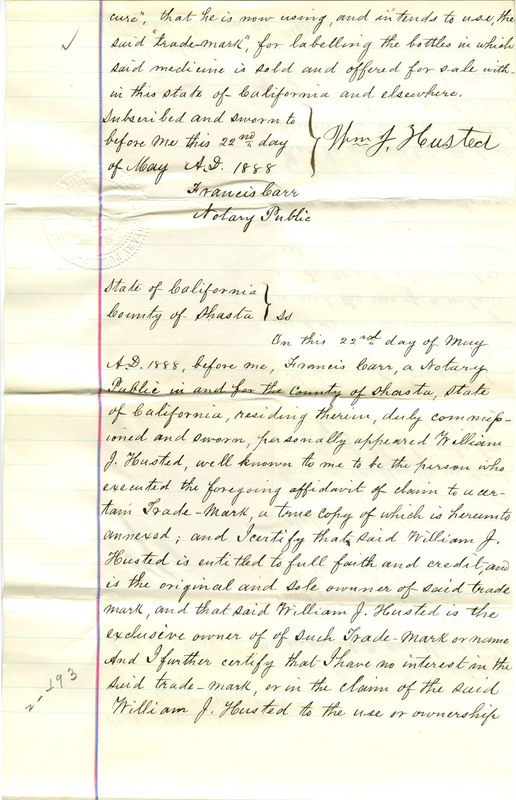 cure", that he is now using, and intends to use, the
said "trade-mark", for labelling the bottles in which
said medicine is sold and offered for sale with-
in this state of California and elsewhere.
Subscribed and sworn to
before me this 22nd day
of May A.D. 1888
Wm J. Husted
Francis Carr
Notary Public
State of California
County of Shasta } ss
On this 22nd day of May
A.D. 1888, before me, Francis Carr, a Notary
Public in and for the County of Shasta, State
of California, residing therein, duly commiss-
ioned and sworn, personally appeared William
J. Husted, well known to me to be the person who
executed the foregoing affidavit of claim to a cer-
tain Trade-Mark, a true copy of which is hereunto
annexed; and I certify that said William J.
Husted is entitled to full faith and credit, and
is the original and sole owner of said trade
mark, and that said William J. Husted is the
exclusive owner of of such Trade-Mark or name
And I further certify that I have no interest in the
said trade-mark, or in the claim of the said
William J. Husted to the use or ownership
193